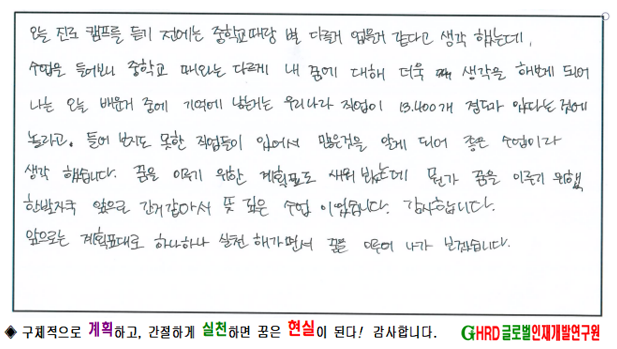 오늘 진로 캠프를 듣기 전에는 중학교때랑 별 다를거 없을거 같다고 생각 했는데,
수업을 들어보니 중학교 때와는 다르게 내 꿈에 대해 더욱 생각을 해보게 되어
나는 오늘 배운거 중에 기억에 남는거는 우리나라 직업이 13,400개 정도가 있다는 것에
놀라고. 들어 보지도 못한 직업들이 있어서 많은것을 알게 되어 좋은 수업이라
생각 했습니다. 꿈을 이루기 위한 계획표도 세워 봤는데 뭔가 꿈을 이루기 위해
한발자국 앞으로 간거같아서 뜻 깊은 수업 이었습니다. 감사합니다.
앞으로는 계획표대로 하나하나 실천 해가면서 꿈을 이루어 나가 보겠습니다.
◈ 구체적으로 계획하고, 간절하게 실천하면 꿈은 현실이 된다! 감사합니다. GHRD 글로벌인재개발연구원